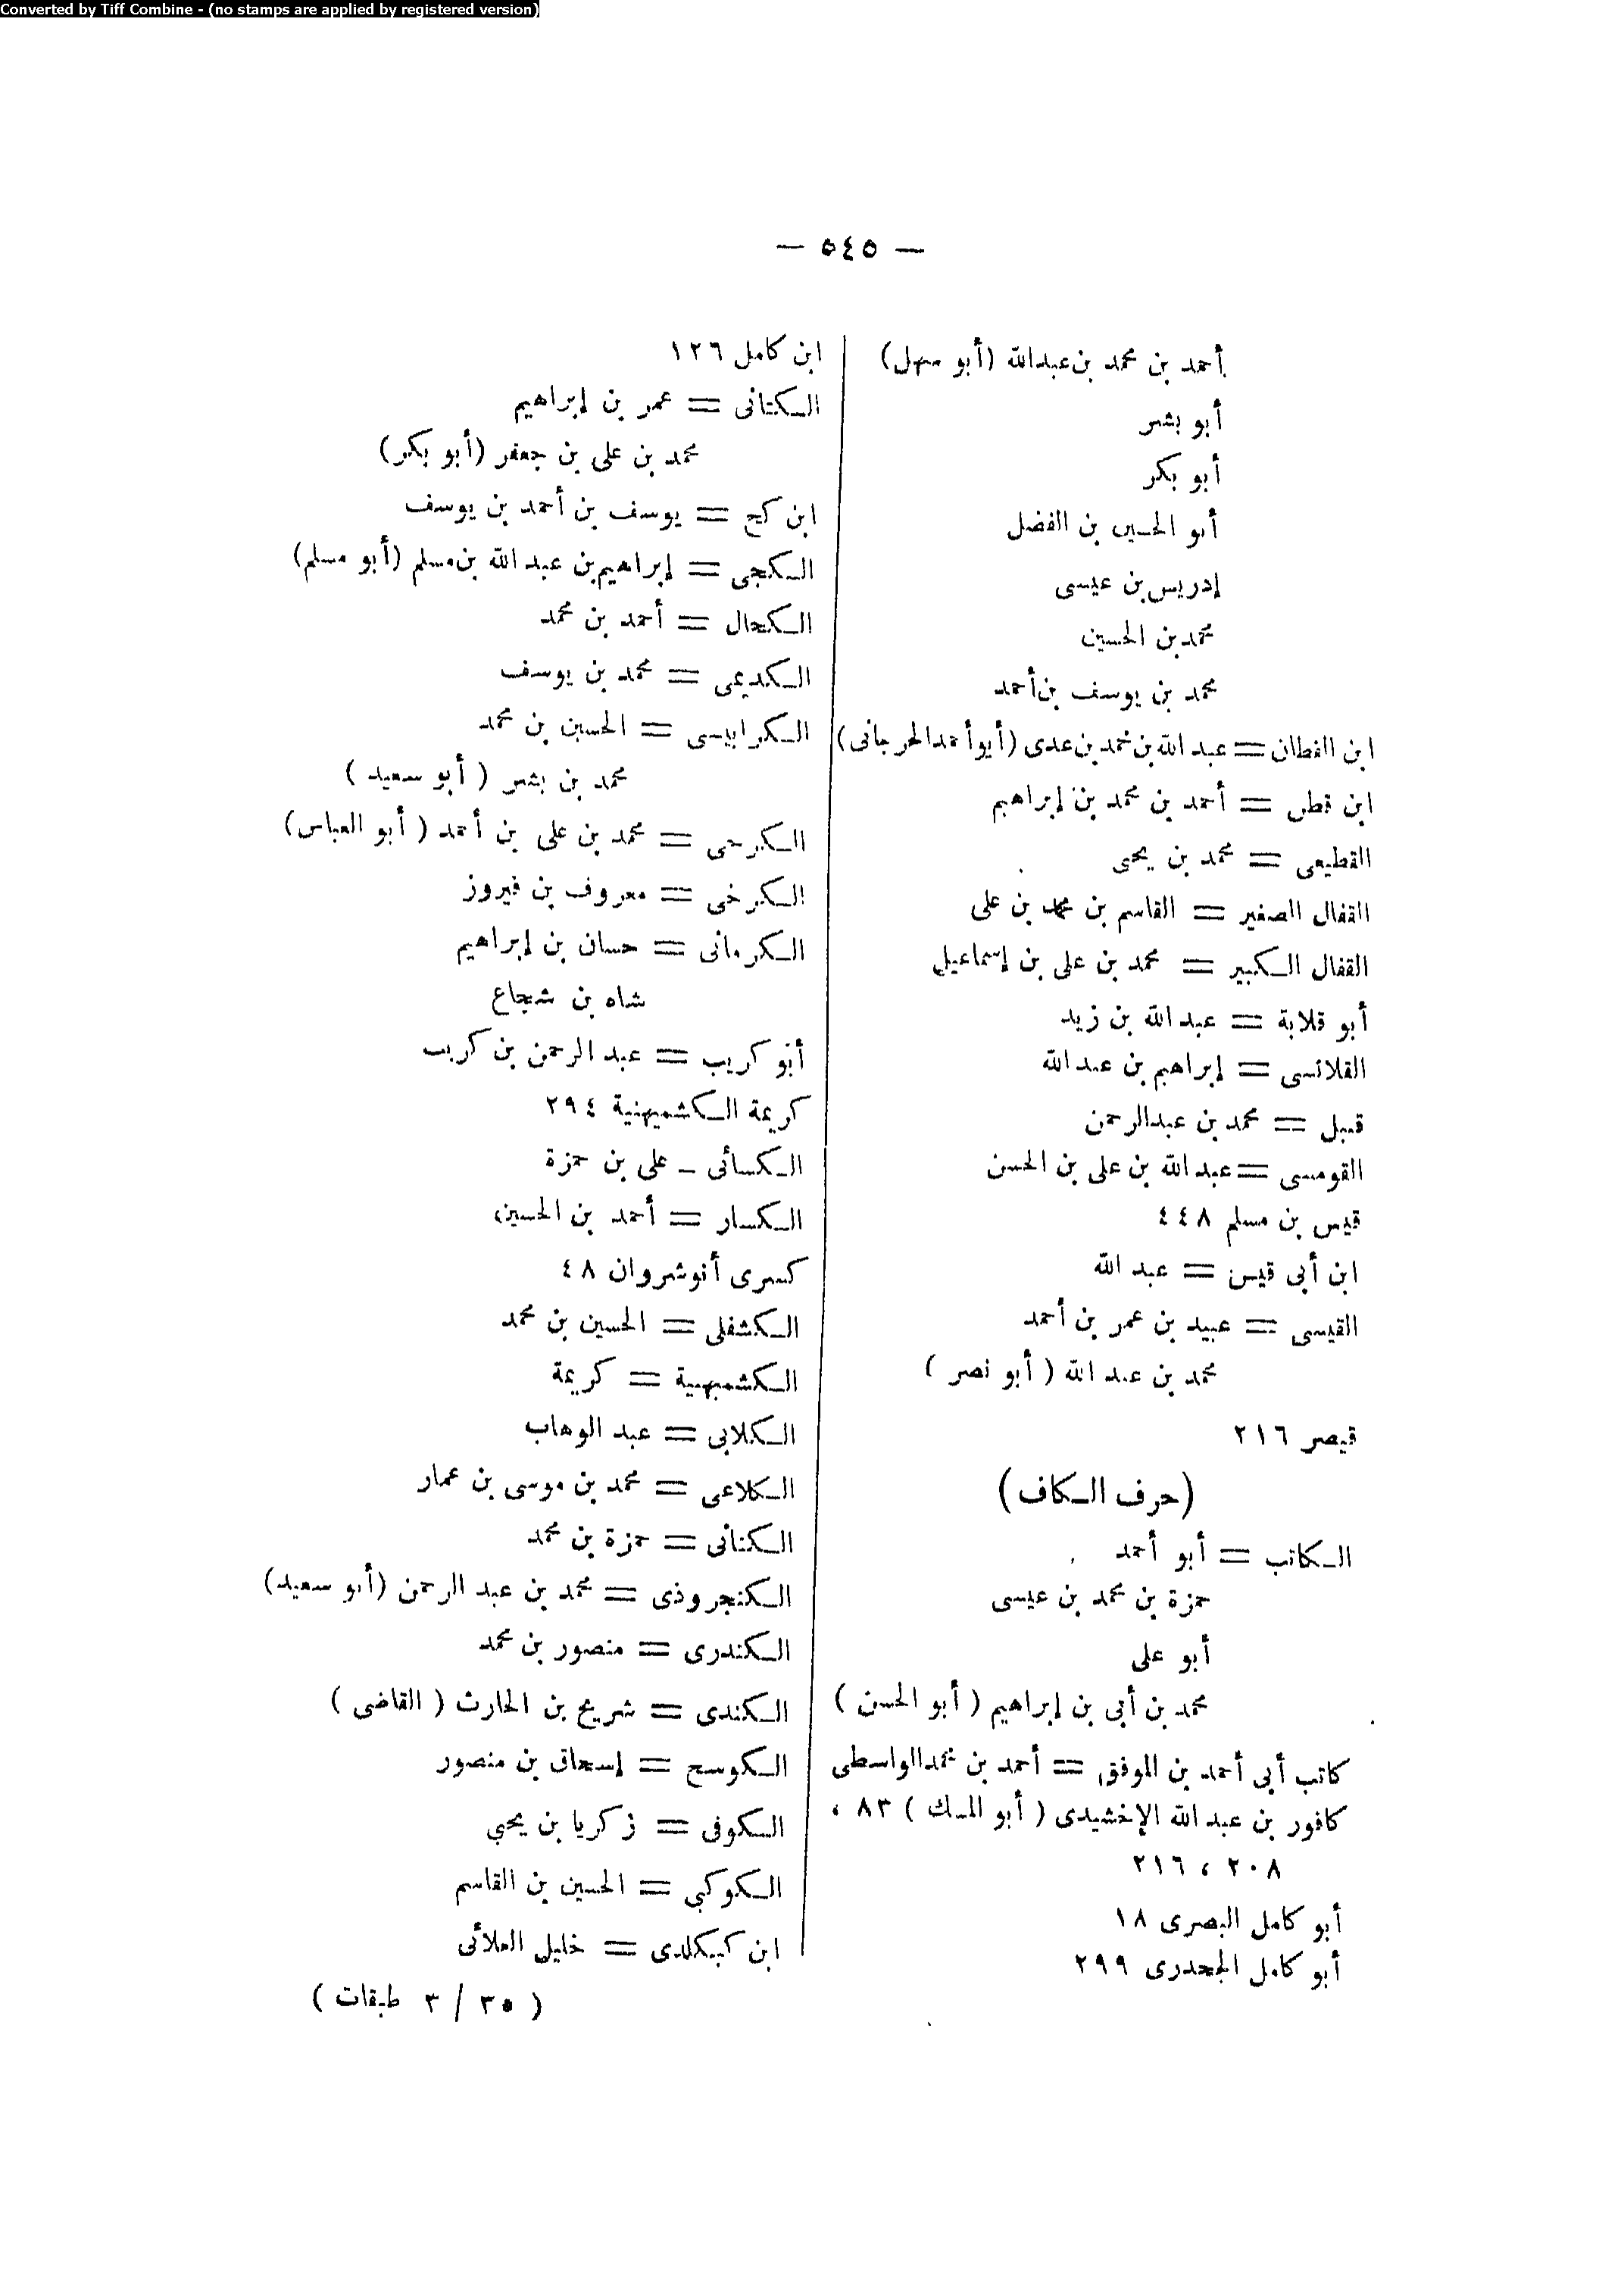 Converted by Tiff Combine - (no stamps are applied by registered version)
— ٥٤٥ —
أحمد بن محمد بن عبدالله (أبو سهل)
أبو بشر
أبو بكر
أبو الحسين بن الفضل
إدريس بن عيسى
محمد بن الحسين
محمد بن يوسف بن أحمد
ابن القطان = عبد الله بن محمد بن عدى (أبو أحمد الجرجانى)
ابن قطن = أحمد بن محمد بن إبراهيم
القطيعى = محمد بن يحيى
القفال الصغير = القاسم بن محمد بن على
القفال الكبير = محمد بن على بن إسماعيل
أبو قلابة = عبد الله بن زيد
القلانسى = إبراهيم بن عبد الله
قنبل = محمد بن عبدالرحمن
القومسى = عبد الله بن على بن الحسن
قيس بن مسلم ٤٤٨
ابن أبى قيس = عبد الله
القيسى = عبيد بن عمر بن أحمد
محمد بن عبد الله ( أبو نصر )
قيصر ٢١٦
(حرف الكاف)
الكاتب = أبو أحمد
حمزة بن محمد بن عيسى
أبو على
محمد بن أبى بن إبراهيم ( أبو الحسن )
كاتب أبى أحمد بن الموفق = أحمد بن محمد الواسطى
كافور بن عبد الله الإخشيدى ( أبو المسك ) ٨٣ ،
٢٠٨ ، ٢١٦
أبو كامل البصرى ١٨
أبو كامل الجحدرى ٢٩٩
ابن كامل ١٢٦
الكتانى = عمر بن إبراهيم
محمد بن على بن جعفر (أبو بكر)
ابن كج = يوسف بن أحمد بن يوسف
الكجى = إبراهيم بن عبد الله بن مسلم (أبو مسلم)
الكحال = أحمد بن محمد
الكديمى = محمد بن يوسف
الكرابيسى = الحسين بن محمد
محمد بن بشر ( أبو سعيد )
الكرجى = محمد بن على بن أحمد ( أبو العباس)
الكرخى = معروف بن فيروز
الكرمانى = حسان بن إبراهيم
شاه بن شجاع
أبو كريب = عبد الرحمن بن كريب
كريمة الكشميهنية ٢٩٤
الكسائى – على بن حمزة
الكسار = أحمد بن الحسين
كسرى أنوشروان ٤٨
الكشفلى = الحسين بن محمد
الكشميهنية = كريمة
الكلابى = عبد الوهاب
الكلاعى = محمد بن موسى بن عمار
الكنانى = حمزة بن محمد
الكنجروذى = محمد بن عبد الرحمن (أبو سعيد)
الكندرى = منصور بن محمد
الكندى = شريح بن الحارث ( القاضى )
الكوسج = إسحاق بن منصور
الكوفى = زكريا بن يحيى
الكوكبى = الحسين بن القاسم
ابن كيكلدى = خليل العلائى
( ٣٥ / ٣ طبقات )